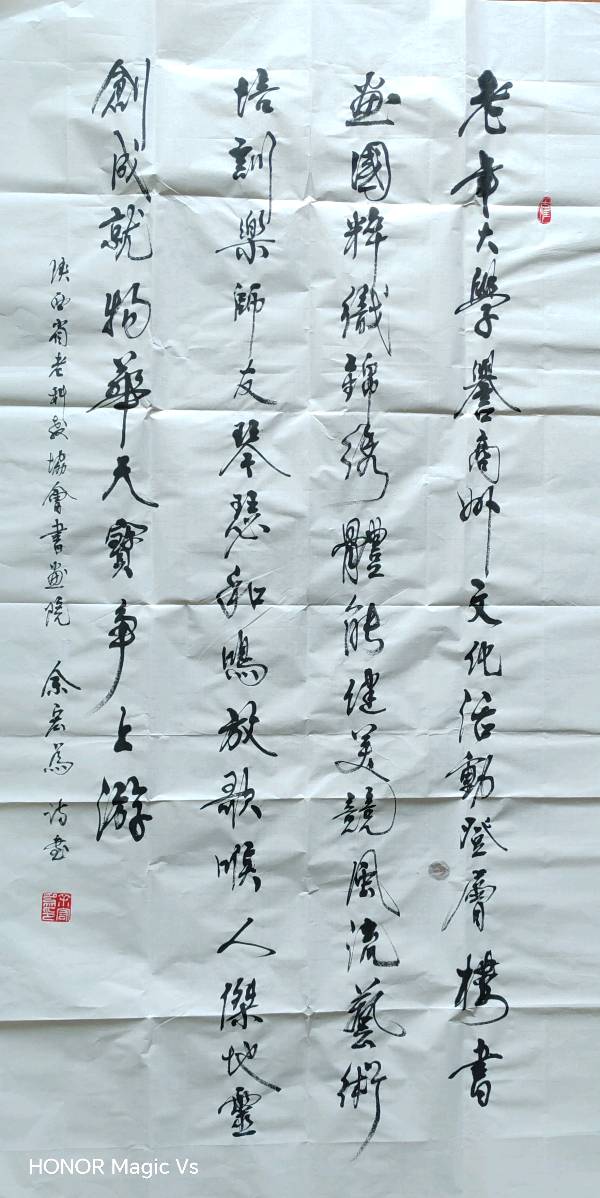 老年大學譽商州文化活動登層樓書
畫國粹織錦绣體能健美競風流藝術
培訓樂師友琴瑟和鳴放歌喉人傑地靈
創成就物華天寶争上游
陕西省老科教協會書畫院 余宏為 詩書
HONOR Magic Vs